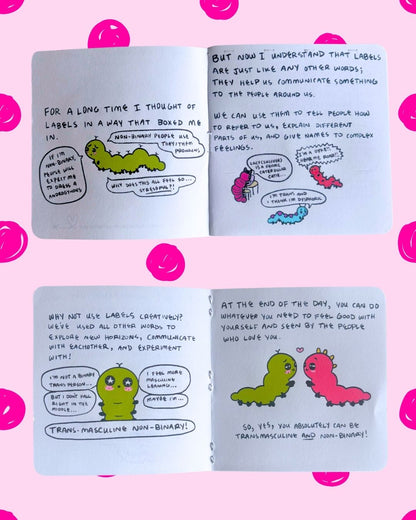 FOR A LONG TIME I THOUGHT OF
LABELS IN A WAY THAT BOXED ME
IN.
NON-BINARY PEOPLE USE
THEY/THEM
PRONOUNS
IF I'M
NON-BINARY,
PEOPLE WILL
EXPECT ME
TO DRESS
ANDROGYNOUS
WHY DOES THIS ALL FEEL SO...
STRESSFUL?!
BUT NOW I UNDERSTAND THAT LABELS
ARE JUST LIKE ANY OTHER WORDS;
THEY HELP US COMMUNICATE SOMETHING
TO THE PEOPLE AROUND US.
WE CAN USE THEM TO TELL PEOPLE HOW
TO REFER TO US, EXPLAIN DIFFERENT
PARTS OF US, AND GIVE NAMES TO COMPLEX
FEELINGS.
CATERPILLAR
HEAR ME ROAR!
I'M TRANS AND
I THINK I'M
WHY NOT USE LABELS CREATIVELY?
WE'VE USED ALL OTHER WORDS TO
EXPLORE NEW HORIZONS, COMMUNICATE
WITH EACHOTHER, AND EXPERIMENT
WITH!
I'M NOT A BINARY
TRANS PERSON...
I FEEL MORE
MASCULINE
LEANING...
BUT I DON'T FALL
RIGHT IN THE
MIDDLE...
MAYBE I'M...
TRANS-MASCULINE NON-BINARY!
AT THE END OF THE DAY, YOU CAN DO
WHATEVER YOU NEED TO FEEL GOOD WITH
YOURSELF AND SEEN BY THE PEOPLE
WHO LOVE YOU.
SO, YES, YOU ABSOLUTELY CAN BE
TRANSMASCULINE AND NON-BINARY!